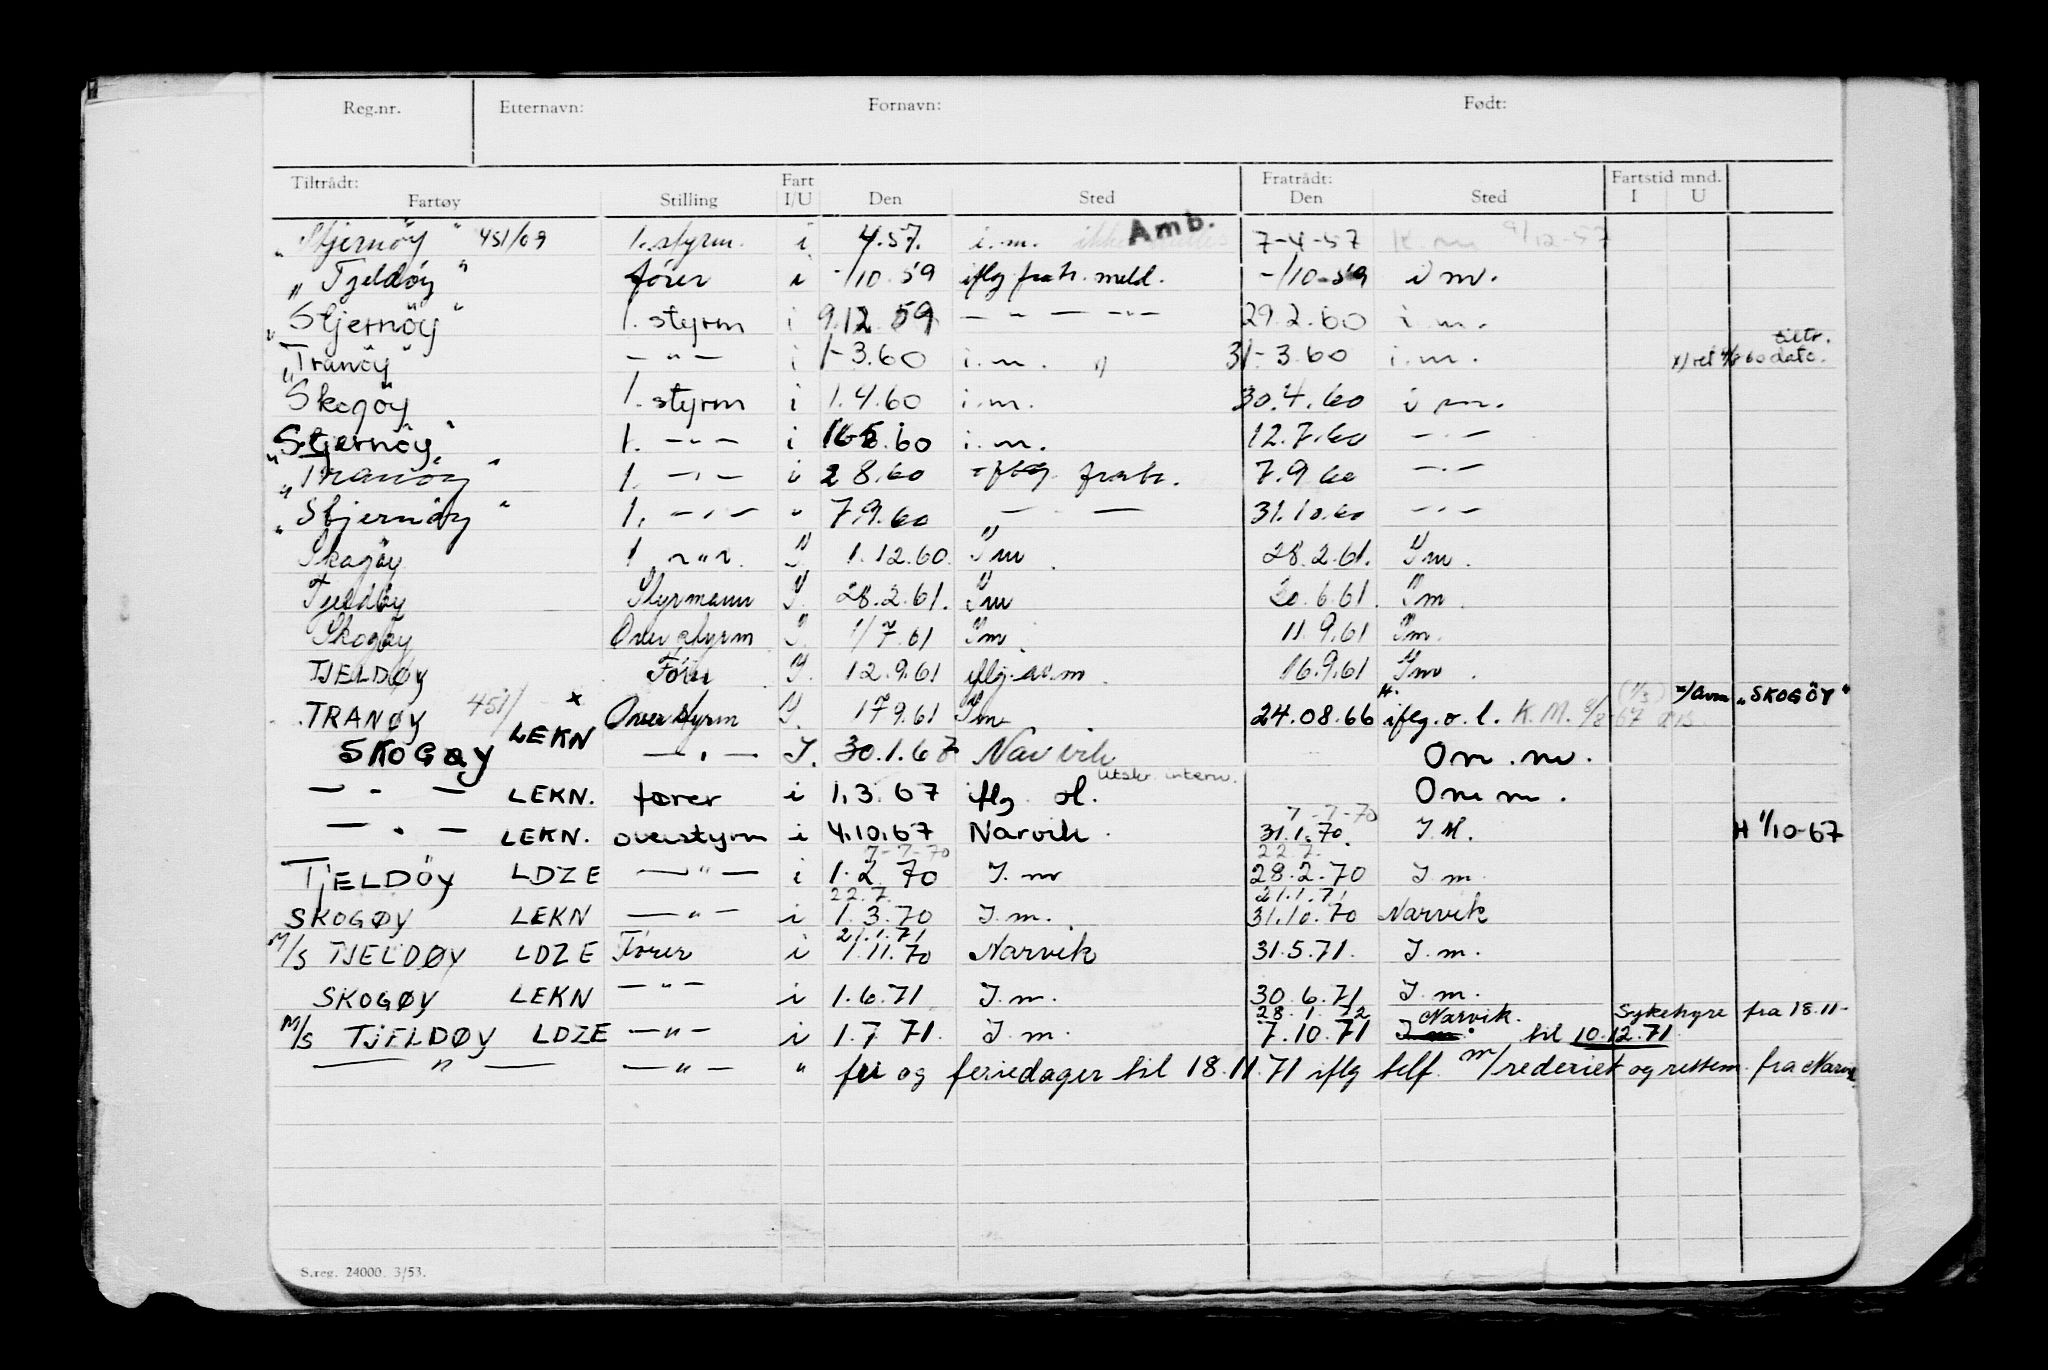 Reg.nr. Etternavn: Fornavn: Født:
Tiltrådt: Fart Fratrådt: Fartstid mnd.
Fartøy Stilling I/U Den Sted Den Sted I U
"Stjernöy" 451/09 1. styrm. i 4.57. i.m. ikke Amb. 7-4-57 K.m 9/12-57
"Tjeldöy" fører i -/10.59 iflg fratr. meld. -/10-59 i m.
"Stjernöy" 1. styrm i 9.12.59 — " — " — 29.2.60 i.m.
tiltr.
"Tranöy" — " — i 1-3.60 i.m. x) 31-3.60 i.m. x) ret 4/6 60 dato.
Skogöy 1. styrm i 1.4.60 i.m. 30.4.60 i m.
"Stjernöy" 1. — " — i 16.5.60 i.m. 12.7.60 — " —
"Tranöy" 1. — " — i 2 8.60 iflg. fratr. 7.9 60 — " —
"Stjernöy" 1. — " — " 7.9.60 — " — 31.10.60 — " —
Skogöy 1 — " — I. 1.12.60 I m. 28.2.61. I m.
Tjeldöy Styrmann I. 28.2.61. I m 30.6.61. I m.
Skogöy Over styrm I. 1/7.61 I m. 11.9.61 I m.
TJELDØY Förer I. 12.9.61 iflg. av.m. 16.9.61 I m.
TRANØY 451/ x Over styrm I. 17 9.61 I m 24.08.66 iflg. o. l. K.M. 8/2-67 (1/3) x/Anm "SKOGÖY"
SKOGØY LEKN — " — I. 30.1.67 Narvik Om.m.
Utskr. interv.
— " — LEKN. fører i 1.3.67 iflg ol. Om m.
7-7-70
— " — LEKN. overstyrm i 4.10.67 Narvik. 31.1.70. I.M. H 1/10-67
7-7-70 22.7.
TJELDÖY LDZE — " — i 1.2.70 I. m 28.2.70 I m.
22.7. 21.1.71
SKOGØY LEKN — " — i 1.3.70 I. m. 31.10.70 Narvik
21.1.71
M/S TJELDØY LDZE Förer i 1.11.70 Narvik 31.5.71. I. m.
SKOGØY LEKN — " — i 1.6.71 I. m. 30.6.71 I. m.
28.1.72 Narvik. Sykehyre fra 18.11-
M/S TJELDØY LDZE — " — i 1.7 71. I. m. 7.10.71 I m. til 10.12.71.
— " — — " — " fri og feriedager til 18.11.71 iflg telf. m/rederiet og rettem. fra Narvik
S.reg. 24000. 3/53.